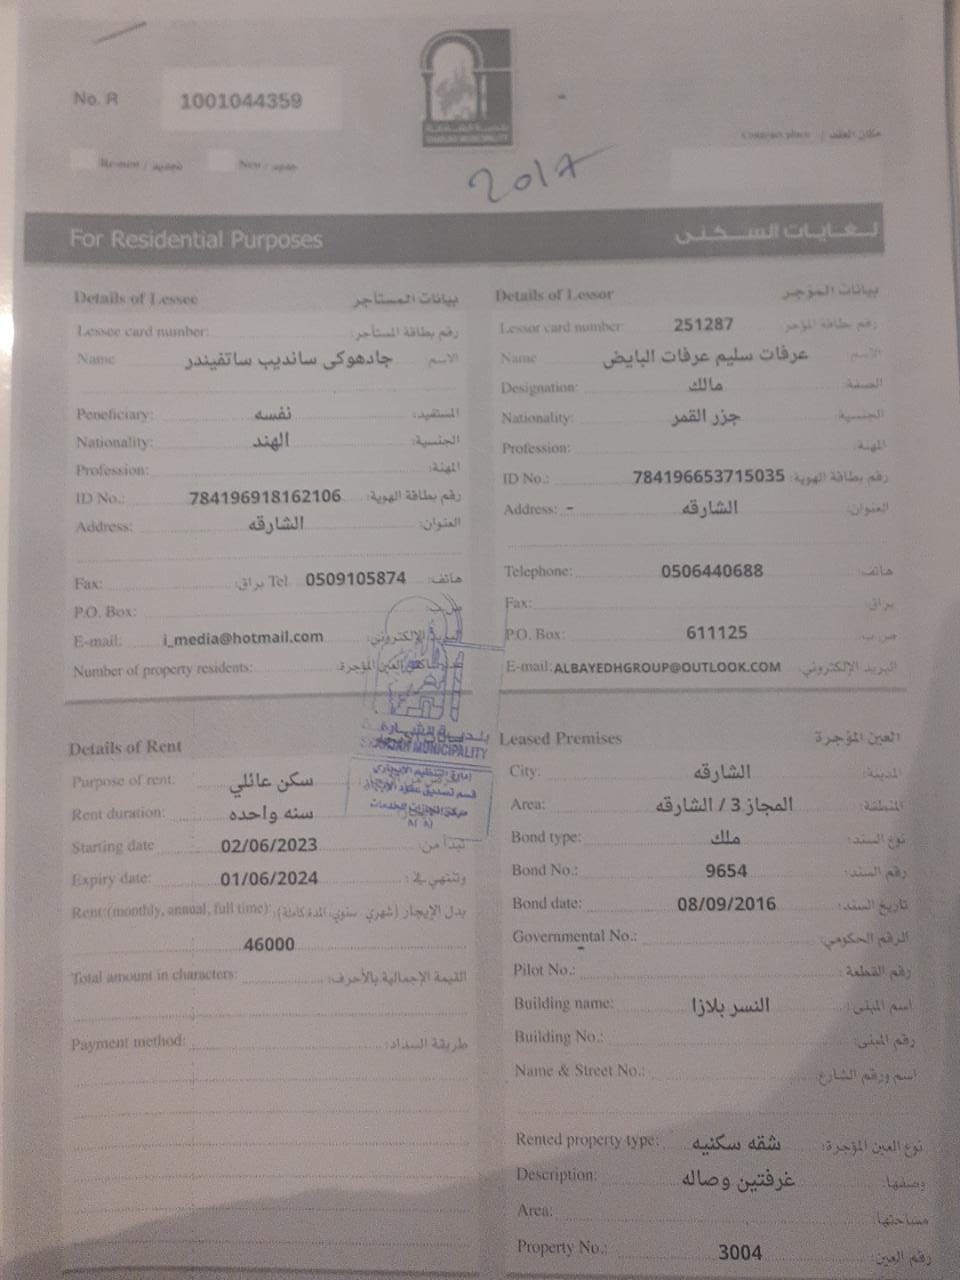 No. R 1001044359
بلدية الشارقة
SHARJAH MUNICIPALITY
Contract place / مكان العقد
Re-new / تجديد New / جديد
2017
For Residential Purposes لغايات السكنى
Details of Lessee بيانات المستأجر
Lessee card number: رقم بطاقة المستأجر:
Name جادهوكى سانديب ساتفيندر الاسم
Peneficiary: نفسه المستفيد:
Nationality: الهند الجنسية:
Profession: المهنة:
ID No.: 784196918162106 رقم بطاقة الهوية:
Address: الشارقه العنوان:
Fax: براق: Tel 0509105874 هاتف:
P.O. Box: ص.ب:
E-mail: i_media@hotmail.com البريد الإلكتروني:
Number of property residents: عدد ساكني العين المؤجرة:
Details of Lessor بيانات المؤجر
Lessor card number 251287 رقم بطاقة المؤجر
Name عرفات سليم عرفات البايض الاسم
Designation: مالك الصفة:
Nationality: جزر القمر الجنسية:
Profession: المهنة:
ID No.: 784196653715035 رقم بطاقة الهوية:
Address: - الشارقه العنوان:
Telephone: 0506440688 هاتف:
Fax: براق:
P.O. Box: 611125 ص.ب:
E-mail: ALBAYEDHGROUP@OUTLOOK.COM البريد الإلكتروني:
بلدية الشارقة
SHARJAH MUNICIPALITY
إدارة التنظيم الايجاري
قسم تصديق عقود الايجار
Details of Rent
Purpose of rent: سكن عائلي
Rent duration: سنه واحده
Starting date 02/06/2023 تبدأ من:
Expiry date: 01/06/2024 وتنتهي في:
Rent:(monthly, annual, full time): بدل الإيجار (شهري، سنوي، المدة كاملة):
46000
Total amount in characters: القيمة الإجمالية بالأحرف:
Payment method: طريقة السداد:
Leased Premises العين المؤجرة
City: الشارقه المدينة:
Area: المجاز 3 / الشارقه المنطقة:
Bond type: ملك نوع السند:
Bond No.: 9654 رقم السند:
Bond date: 08/09/2016 تاريخ السند:
Governmental No.: الرقم الحكومي:
Pilot No.: رقم القطعة:
Building name: النسر بلازا اسم المبنى:
Building No.: رقم المبنى:
Name & Street No.: اسم ورقم الشارع:
Rented property type: شقه سكنيه نوع العين المؤجرة:
Description: غرفتين وصاله وصفها:
Area: مساحتها:
Property No.: 3004 رقم العين: